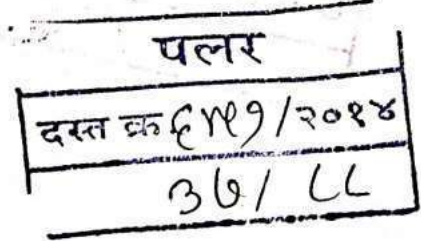 पलर
दस्त क्र ६५९/२०१४
३७/ ८८